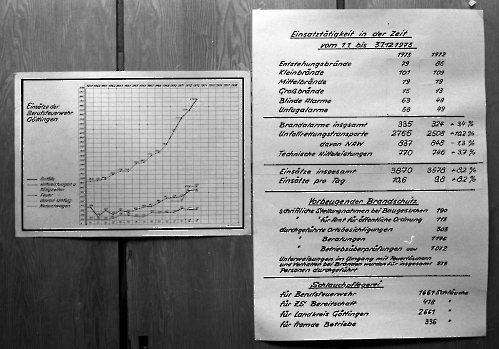 Einsätze der
Berufsfeuerwehr
Göttingen
Einsatztätigkeit in der Zeit
vom 1.1. bis 31.12.1973
1973 1972
Entstehungsbrände 79 86
Kleinbrände 101 109
Mittelbrände 19 19
Großbrände 15 13
Blinde Alarme 63 48
Unfugalarme 58 49
Brandalarme insgesamt 335 324 + 3,4 %
Unfallrettungstransporte 2765 2508 + 10,2 %
davon NAW 837 848 - 1,3 %
Technische Hilfeleistungen 770 746 + 3,7 %
Einsätze insgesamt 3870 3578 + 8,2 %
Einsätze pro Tag 10,6 9,8 + 8,2 %
Vorbeugender Brandschutz
schriftliche Stellungnahmen bei Baugesuchen 190
" für Amt für öffentliche Ordnung 113
durchgeführte Ortsbesichtigungen 503
" Beratungen 1196
" Betriebsüberprüfungen 1012
Unterweisungen im Umgang mit Feuerlöschern
und Verhalten bei Bränden wurden für insgesamt 373
Personen durchgeführt
Schlauchpflegerei
für Berufsfeuerwehr 1667 Schläuche
für ZS Bereitschaft 418 "
für Landkreis Göttingen 2661 "
für fremde Betriebe 336 "